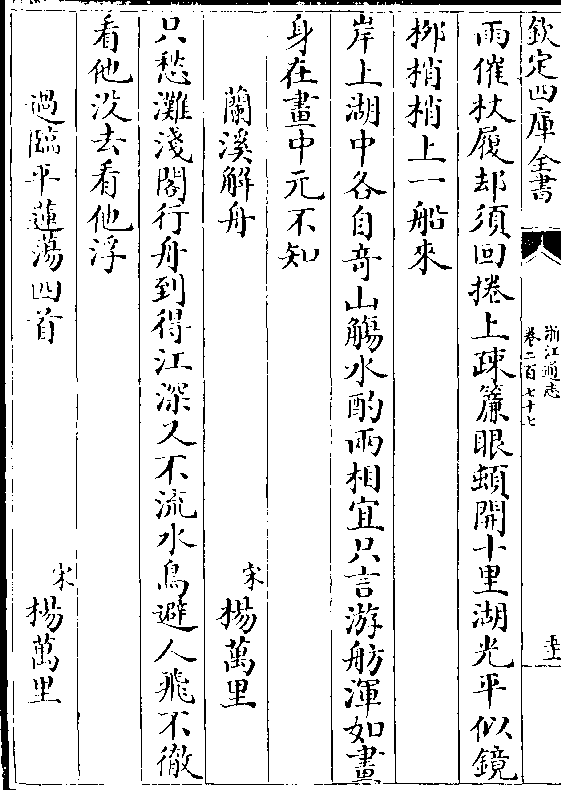 欽定四庫全書
浙江通志
卷二百七十七
雨催杖履却須回捲上疎簾眼頓開十里湖光平似鏡
栁梢梢上一船來
岸上湖中各自竒山觴水酌兩相宜只言游舫渾如畫
身在畫中元不知
蘭溪解舟 宋 楊萬里
只愁灘淺閣行舟到得江深又不流水鳥避人飛不徹
看他没去看他浮
過臨平蓮蕩四首 宋 楊萬里